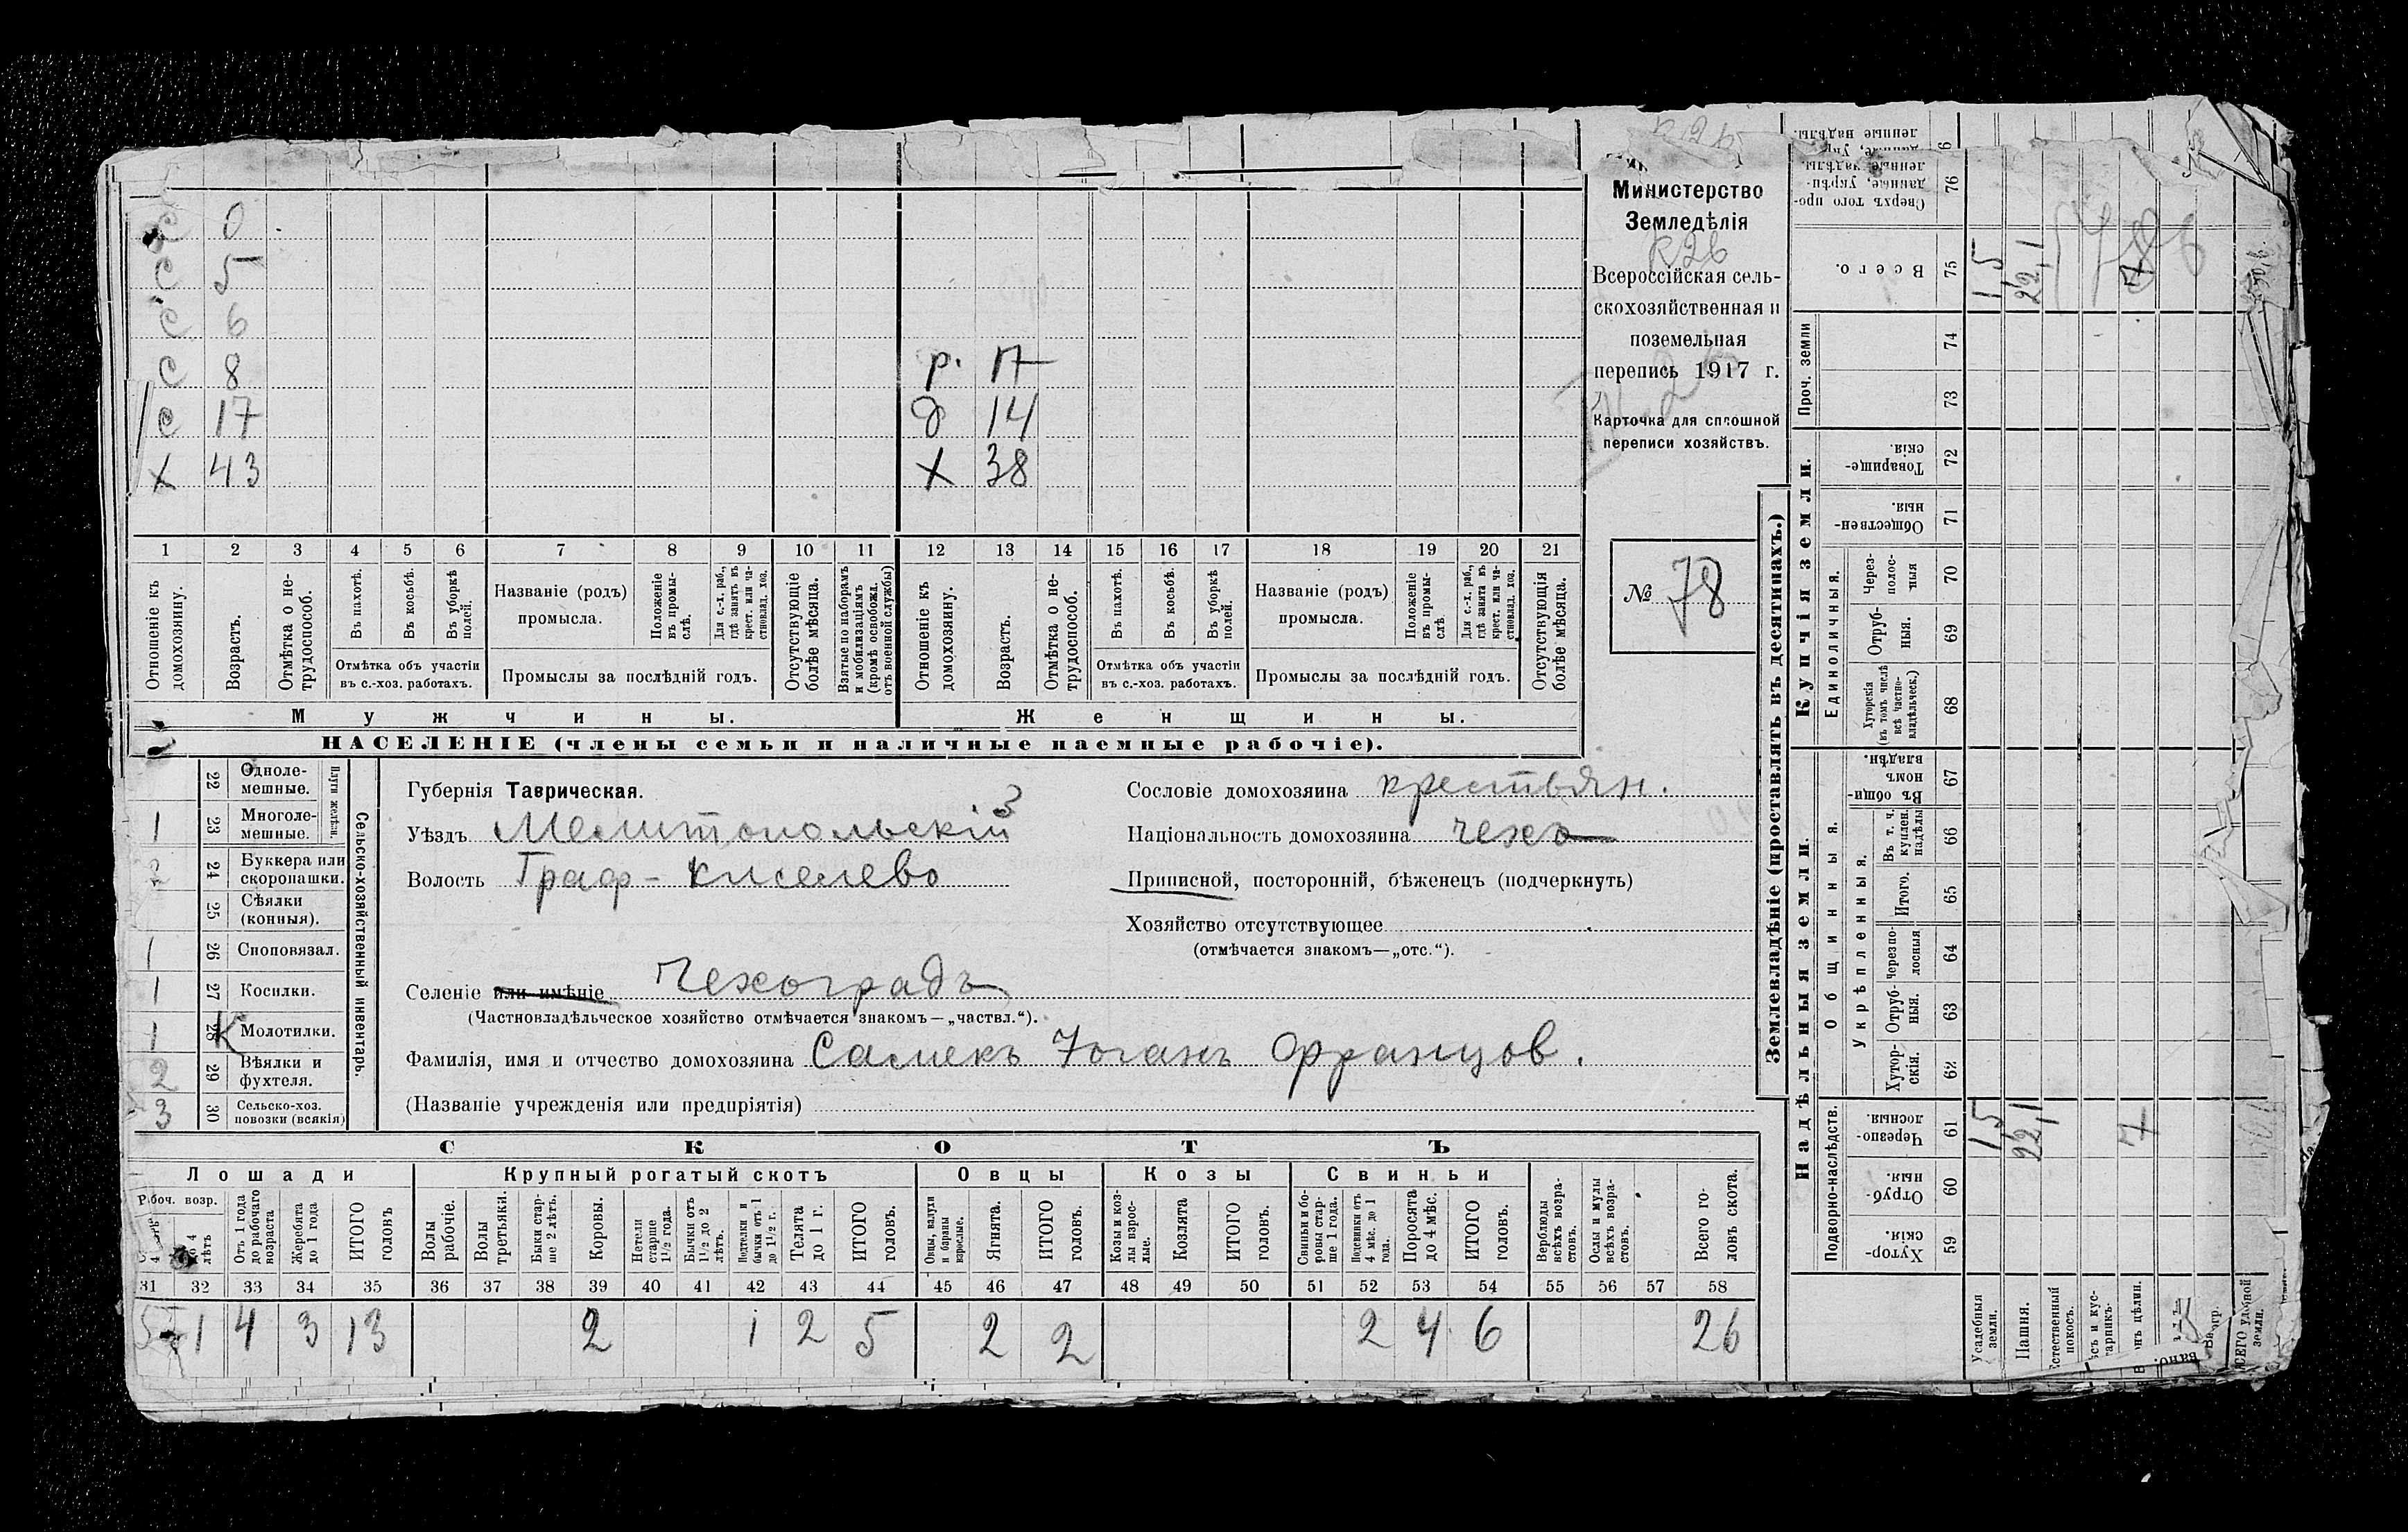 С 0
С 5
С 6
С 8 р. 17
С 17 д 14
Х 43 Х 38
1 2 3 4 5 6 7 8 9 10 11 12 13 14 15 16 17 18 19 20 21
Отношеніе къ домохозяину.
Возрастъ.
Отмѣтка о не-трудоспособ.
Въ пахотѣ.
Въ косьбѣ.
Въ уборкѣ полей.
Отмѣтка объ участіи
въ с.-хоз. работахъ.
Названіе (родъ)
промысла.
Положеніе въ промы-слѣ.
Для с.-х. раб., гдѣ занятъ въ крест. или ча-стновлад. хоз.
Промыслы за послѣдній годъ.
Отсутствующіе болѣе мѣсяца.
Взятые по наборамъ и мобилизаціямъ (кромѣ освобожд. отъ военной службы)
Отношеніе къ домохозяину.
Возрастъ.
Отмѣтка о не-трудоспособ.
Въ пахотѣ.
Въ косьбѣ.
Въ уборкѣ полей.
Отмѣтка объ участіи
въ с.-хоз. работахъ.
Названіе (родъ)
промысла.
Положеніе въ промы-слѣ.
Для с.-х. раб., гдѣ занята въ крест. или ча-стновлад. хоз.
Промыслы за послѣдній годъ.
Отсутствующія болѣе мѣсяца.
Мужчины.
Женщины.
НАСЕЛЕНІЕ (члены семьи и наличные наемные рабочіе).
Министерство
Земледѣлія
Всероссійская сель-
скохозяйственная и
поземельная
перепись 1917 г.
Карточка для сплошной
переписи хозяйствъ.
№ 78
22 Одноле-мешные.
1 23 Многоле-мешные.
Плуги желѣзн.
2 24 Буккера или скоропашки.
25 Сѣялки (конныя).
1 26 Сноповязал.
1 27 Косилки.
1 28 К Молотилки.
2 29 Вѣялки и фухтеля.
3 30 Сельско-хоз. повозки (всякія)
Сельско-хозяйственный инвентарь.
Губернія Таврическая.
Уѣздъ Мелитопольскій 3
Волость Граф-Киселево
Сословіе домохозяина крестьян.
Національность домохозяина чехъ
Приписной, посторонній, бѣженецъ (подчеркнуть)
Хозяйство отсутствующее
(отмѣчается знакомъ—„отс.“).
Селеніе или имѣніе Чехоградъ
(Частновладѣльческое хозяйство отмѣчается знакомъ—„частвл.“).
Фамилія, имя и отчество домохозяина Салекъ Іоганъ Францов.
(Названіе учрежденія или предпріятія)
СКОТЪ
Лошади Крупный рогатый скотъ Овцы Козы Свиньи
Рабоч. возр.
до 4 лѣтъ
Отъ 1 года до рабочаго возраста
Жеребята до 1 года
ИТОГО головъ
Волы рабочіе.
Волы третьяки.
Быки стар-ше 2 лѣтъ.
Коровы.
Нетели старше 1½ года.
Бычки отъ 1½ до 2 лѣтъ.
Подтелки и бычки отъ 1 до 1½ г.
Телята до 1 г.
ИТОГО головъ.
Овцы, валухи и бараны взрослые.
Ягнята.
ИТОГО головъ.
Козы и коз-лы взрос-лые.
Козлята
ИТОГО головъ.
Свиньи и бо-ровы стар-ше 1 года.
Подсвинки отъ 4 мѣс. до 1 года.
Поросята до 4 мѣс.
ИТОГО головъ.
Верблюды всѣхъ возра-стовъ.
Ослы и мулы всѣхъ возра-стовъ.
Всего го-ловъ скота.
31 32 33 34 35 36 37 38 39 40 41 42 43 44 45 46 47 48 49 50 51 52 53 54 55 56 57 58
5 1 4 3 13 2 1 2 5 2 2 2 4 6 26
Землевладѣніе (проставлять въ десятинахъ.)
Купчія земли.
Надѣльныя земли.
Сверхъ того про-данные, укрѣп-ленные надѣлы. 76
Всего. 75 15 22,1 7
Проч. земли
74
73
Товарище-скія. 72
Обществен-ныя. 71
Единоличныя.
Через-полос-ныя 70
Отруб-ныя. 69
Хуторскія (въ томъ числѣ всѣ частно-владѣльческ.) 68
Общинныя.
Въ общи-номъ владѣн. 67
Укрѣпленныя.
Въ т. ч. куплен. надѣлы 66
Итого. 65
Черезпо-лосныя 64
Отруб-ныя. 63
Хутор-скія. 62
Подворно-наслѣдств.
Черезпо-лосныя 61 15 22,1 7
Отруб-ныя. 60
Хутор-скія. 59
Усадебныя земли.
Пашня.
Естественный покосъ.
цѣлин.
удобной земли.